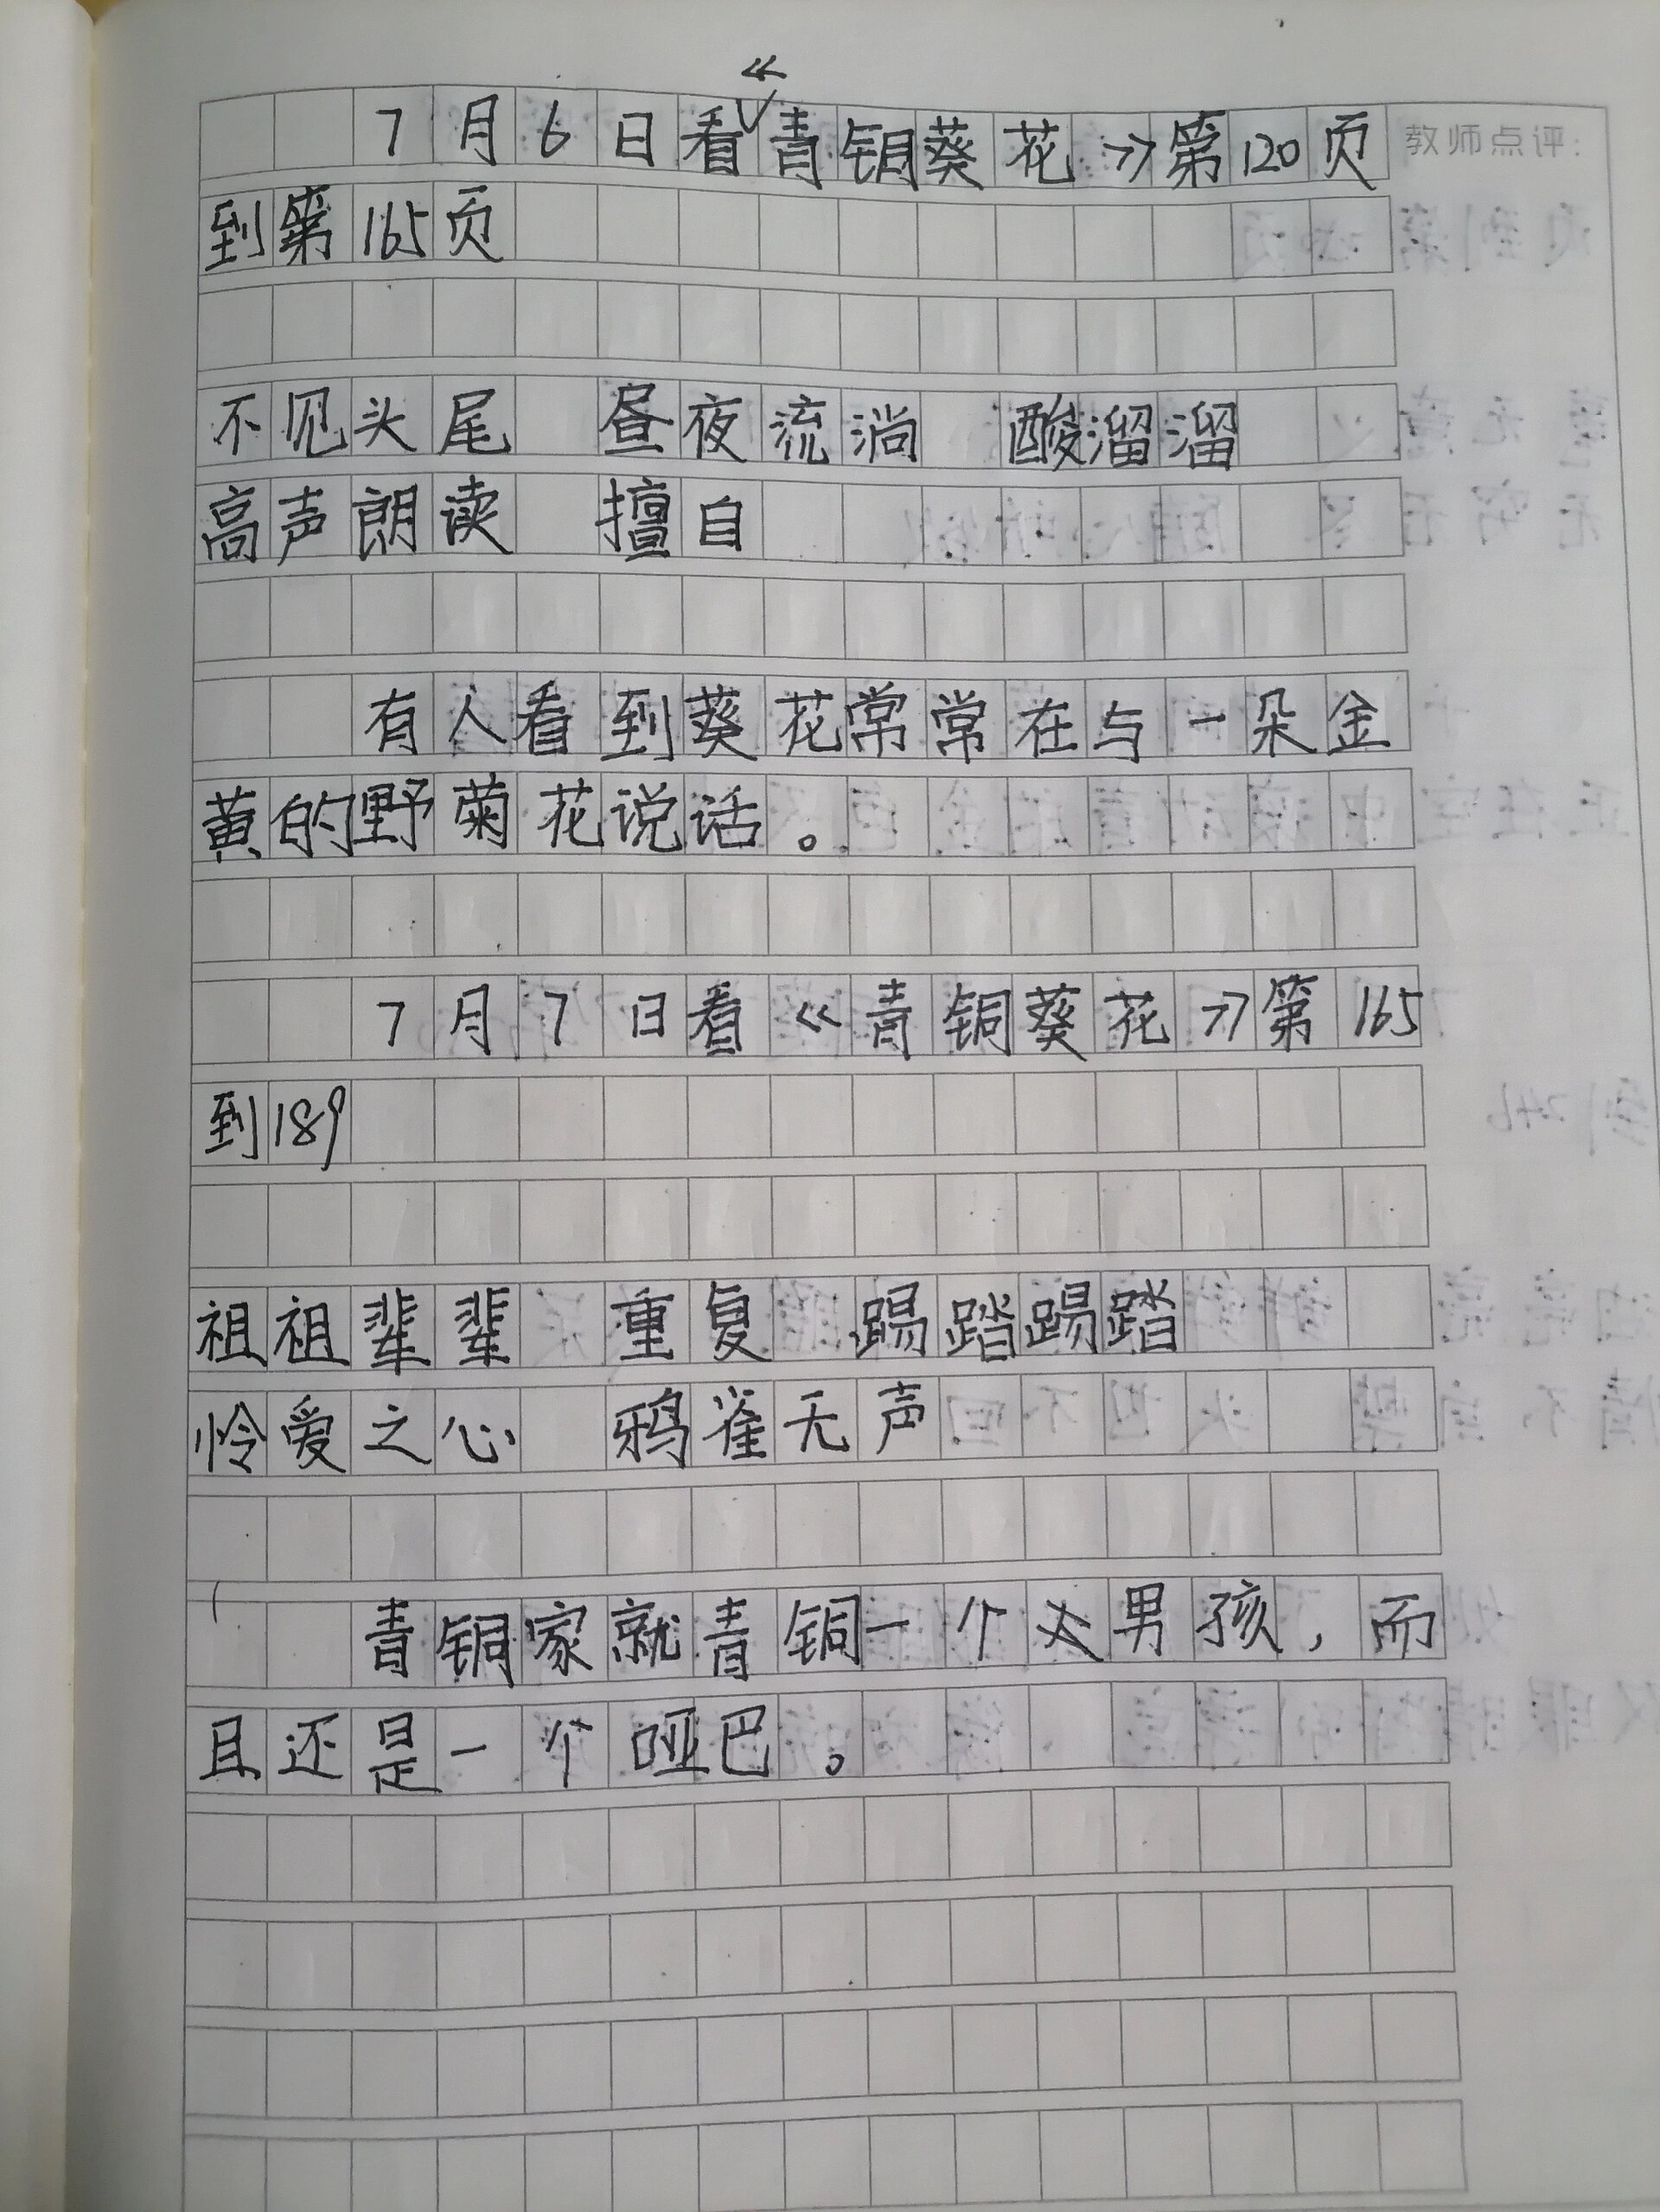 7月6日看《青铜葵花》第120页
教师点评:
到第165页
不见头尾 昼夜流淌 酸溜溜
高声朗读 擅自
有人看到葵花常常在与一朵金
黄的野菊花说话。
7月7日看《青铜葵花》第165
到189
祖祖辈辈 重复 踢踏踢踏
怜爱之心 鸦雀无声
青铜家就青铜一个男孩,而
且还是一个哑巴。